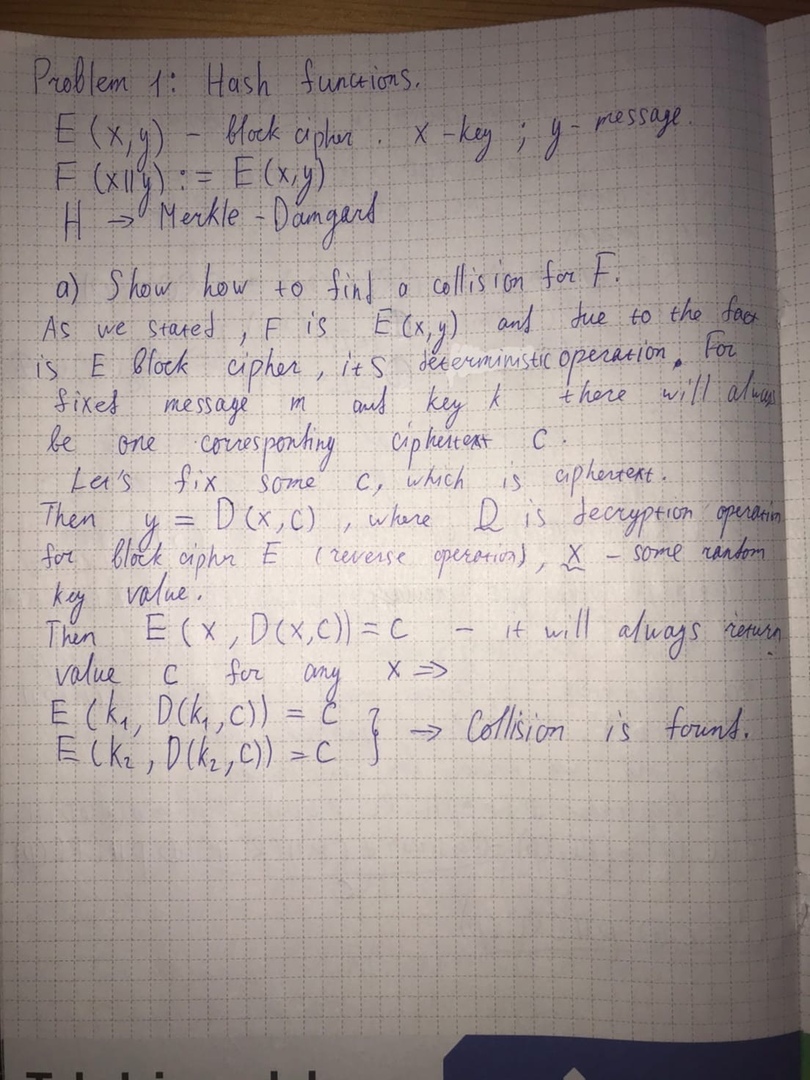 Problem 1: Hash functions.
E(x,y) - block cipher. x-key; y-message.
F(x||y) := E(x,y)
H → Merkle-Damgard
a) Show how to find a collision for F.
As we stated, F is E(x,y) and due to the fact
is E block cipher, its deterministic operation. For
fixed message m and key k there will always
be one corresponting ciphertext c.
Let's fix some c, which is ciphertext.
Then y = D(x,c), where D is decryption operation
for block ciphr E (reverse operation), x - some random
key value.
Then E(x, D(x,c)) = c - it will always return
value c for any x ⇒
E(k₁, D(k₁,c)) = c
E(k₂, D(k₂,c)) = c } → Collision is found.